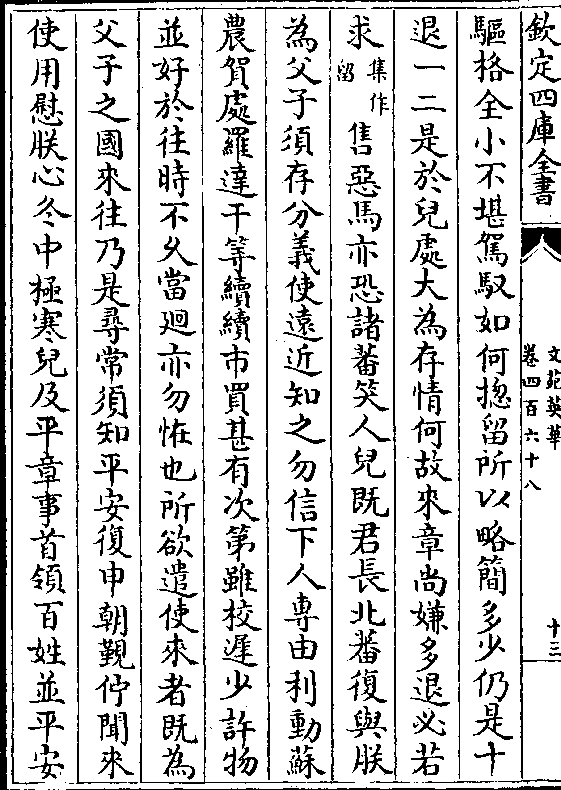 欽定四庫全書
文苑英華
卷四百六十八
十三
驅格全小不堪駕馭如何揔留所以略簡多少仍是十
退一二是於兒處大為存情何故來章尚嫌多退必若
求集作留售惡馬亦恐諸蕃笑人兒既君長北蕃復與朕
為父子須存分義使遠近知之勿信下人專由利動蘇
農賀處羅達干等續續市買甚有次第雖校遲少許物
並好於往時不久當廻亦勿恠也所欲遣使來者既為
父子之國來往乃是尋常須知平安復申朝覲佇聞來
使用慰朕心冬中極寒兒及平章事首領百姓並平安